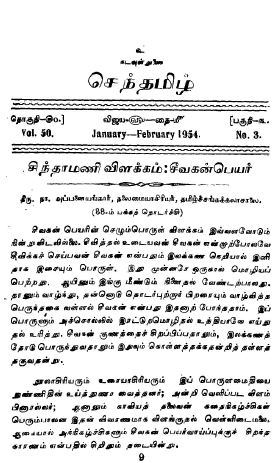 உ
கடவுள் துணை
செந்தமிழ்
தொகுதி-௫௰.] விஜய௵-தை-மீ [பகுதி-௩.
Vol. 50. January—February 1954. No. 3.
சிந்தாமணி விளக்கம்: சீவகன்பெயர்
திரு. நா. அப்பனையங்கார், தலைமையாசிரியர், தமிழ்ச்சங்கக்கலாசாலை.
பக்கத் தொடர்ச்சி)
சீவகன் பெயரின் செழும்பொருள் விளக்கம் இவ்வளவோடும்
நின்றுவிடவில்லை. சீவித்தல் உடையவன் சீவகன் என்னுற்போலவே
சீவிக்கச் செய்பவன் சீவகன் என்பதும் இலக்கண நெறியால் இனி
தாக இசையும் பொருள். இது முன்னரே ஒருகால் மொழியப்
பெற்றது. ஆயினும் இங்கு மீண்டும் நினைதல் வேண்டற்பாலது.
தானும் வாழ்ந்து, தன்னொடு தொடர்புற்றார் பிறரையும் வாழ்வித்த
பெருந்தகை வள்ளல் சீவகன் என்பது இதனாற் போந்ததாம். இப்
பொருளும் அச்சொல்லில் இரட்டுறமொழிதல் உத்தியாலே எய்து
தல் உரித்து. சீவகன் குணத்தைச் சிறப்பிப்பதாலும், இலக்கணத்
தோடுபொருந்துவதாலும் இதுவும் கொள்ளத்தக்கதன்றித் தள்ளத்
தகுவதன்று.
நூலாசிரியரும் உரையாசிரியரும் இப் பொருளமைதியை
நுண்ணிதின் உய்த்துணர வைத்தனர்; அன்றி வெளிப்பட விளம்
பினாரல்லர்; ஆனாலும் காவியத் தலைவன் கதைநிகழ்ச்சிகள்
பெரும்பாலன இதன் விவரணமாக விளங்குதல் வெள்ளிடைமலை.
ஆகையால் அந்நிகழ்ச்சிகளும் சீவகன் பெயர்வாய்ப்புக்குச் சிறந்த
காரணம் என்பதில் சிறிதும் தடையின்று.
9